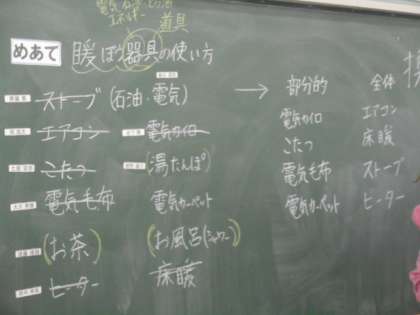 電気 石油
道具
めあて 暖ぼう器具の使い方
ストーブ (石油・電気)
エアコン 電気カイロ
こたつ (湯たんぽ)
電気毛布 電気カーペット
(お茶) (お風呂(シャワー)
ヒーター 床暖
→ 部分的 全体
電気カイロ エアコン
こたつ 床暖
電気毛布 ストーブ
電気カーペット ヒーター